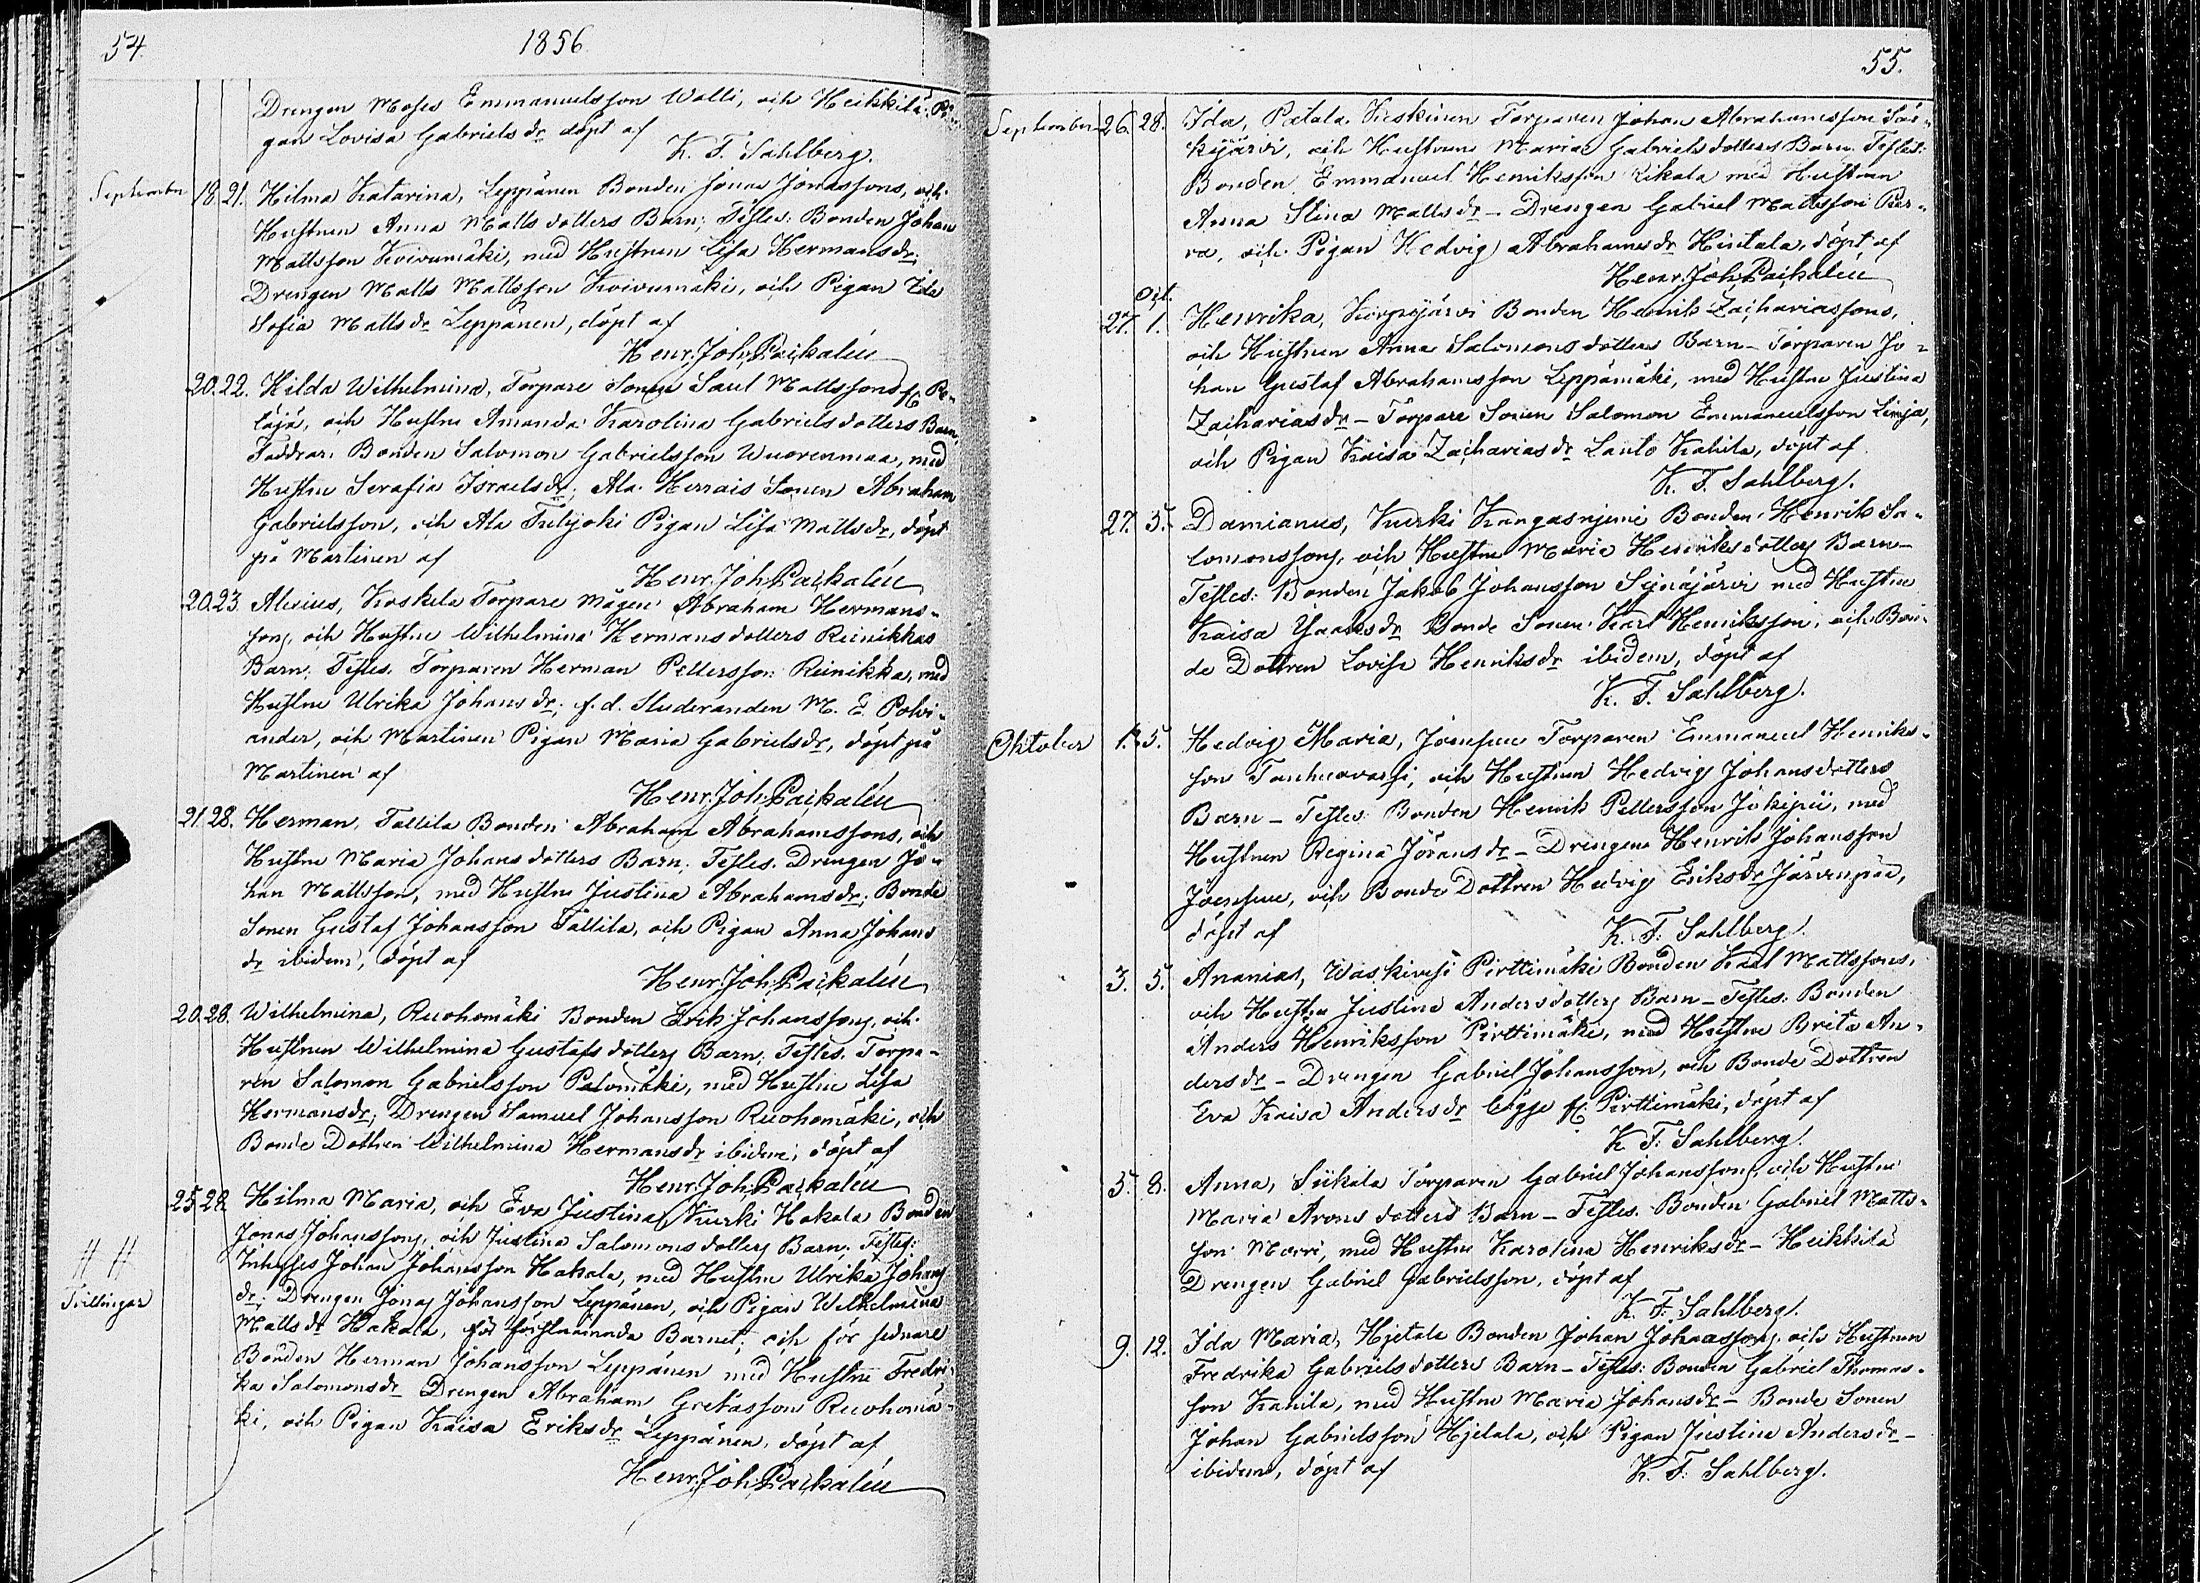 54.
1856.
Drengen Moses Emmanuelsson Walli, och Heikkilä Pi-
gan Lovisa Gabrielsdr döpt af
K. F. Sahlberg.
September 18. 21. Hilma Katarina, Leppänen Bonden Jonas Jonassons, och
Hustrun Anna Mattsdotters Barn; Testes: Bonden Johan
Mattsson Koivumäki, med Hustrun Lisa Hermansdr;
Drengen Matts Mattsson Koivumäki, och Pigan Ida
Sofia Mattsdr Leppänen, döpt af
Henr. Joh. Paikalén
20. 22. Hilda Wilhelmina, Torpare Sonen Saul Mattssons fr
och Hustru Amanda Karolina Gabrielsdotters Barn,
Faddrar: Bonden Salomon Gabrielsson Wuorenmaa, med
Hustru Serafia Israelsdr; Ala Herrais Sonen Abraham
Gabrielsson, och Ala Tulijoki Pigan Lisa Mattsdr, döpt
på Martinen af
Henr. Joh. Paikalén
20. 23. Alexius, Koskela Torpare Mågen Abraham Hermans-
sons, och Hustru Wilhelmina Hermansdotters Reinikkas
Barn; Testes. Torparen Herman Pettersson Reinikka, med
Hustru Ulrika Johansdr; f. d. Studeranden M. E. Polvi-
ander, och Martinen Pigan Maria Gabrielsdr, döpt på
Martinen af
Henr. Joh. Paikalén
21. 28. Herman, Tallila Bonden Abraham Abrahamssons, och
Hustru Maria Johansdotters Barn; Testes. Drengen Jo-
han Mattsson, med Hustru Justina Abrahamsdr; Bonde
Sonen Gustaf Johansson Tallila, och Pigan Anna Johans
dr ibidem, döpt af
Henr. Joh. Paikalén
20. 28. Wilhelmina, Ruohomäki Bonden Erik Johanssons, och
Hustrun Wilhelmina Gustafsdotters Barn. Testes. Torpa-
ren Salomon Gabrielsson Palomäki, med Hustru Lisa
Hermansdr; Drengen Samuel Johansson Ruohomäki, och
Bonde Dottren Wilhelmina Hermansdr ibidem, döpt af
Henr. Joh. Paikalén
25. 28. Hilma Maria, och Eva Justina, Kurki Hakala Bonden
Jonas Johanssons, och Justina Salomonsdotters Barn. Testes:
Inhyses Johan Johansson Hakala, med Hustru Ulrika Johans
Tvillingar
dr; Drengen Jonas Johansson Leppänen, och Pigan Wilhelmina
Mattsdr Hakala, för förstnämnda Barnet; och för sednare
Bonden Herman Johansson Leppänen med Hustru Fredri-
ka Salomonsdr Drengen Abraham Gretasson Ruohomä-
ki, och Pigan Kaisa Eriksdr Leppänen, döpt af
Henr. Joh. Paikalén
55.
September 26. 28. Ida, Patala Keskinen Torparen Johan Abrahamsson Sää-
kijärvi, och Hustruns Maria Gabrielsdotters Barn. Testes:
Bonden Emmanuel Henriksson Kikala med Hustrun
Anna Stina Mattsdr - Drengen Gabriel Mattsson Per-
ra, och Pigan Hedvig Abrahamsdr Hietala, döpt af
Henr. Joh. Paikalén
Oct.
27. 1. Henrika, Korpijärvi Bonden Henrik Zachariassons,
och Hustrun Anna Salomonsdotters Barn - Torparen Jo-
han Gustaf Abrahamsson Leppämäki, med Hustru Justina
Zachariasdr - Torpare Sonen Salomon Emmanuelsson Linja,
och Pigan Kaisa Zachariasdr Lauto Kahila, döpt af
K. F. Sahlberg.
27. 5. Damianus, Kurki Kangasniemi Bonden Henrik Sa-
lomonssons, och Hustru Maria Henriksdotters Barn -
Testes: Bonden Jakob Johansson Seinäjärvi med Hustru
Kaisa Isaksdr Bonde Sonen Karl Henriksson, och Bon-
de Dottren Lovisa Henriksdr ibidem, döpt af
K. F. Sahlberg.
Oktober 1. 5. Hedvig Maria, Jöensuu Torparen Emmanuel Henriks-
son Tanhuavarsi, och Hustrun Hedvig Johansdotters
Barn - Testes Bonden Henrik Pettersson Jokipii, med
Hustrun Regina Jöransdr - Drengen Henrik Johansson
Joensuu, och Bonde Dottren Hedvig Eriksdr Järvenpää,
döpt af
K. F. Sahlberg.
3. 5. Ananias, Waskivesi Pirttimäki Bonden Karl Mattssons,
och Hustru Justina Andersdotters Barn - Testes: Bonden
Anders Henriksson Pirttimäki, med Hustru Brita An-
dersdr - Drengen Gabriel Johansson, och Bonde Dottren
Eva Kaisa Andersdr begge fr Pirttimäki, döpt af
K. F. Sahlberg.
5. 8. Anna, Siikala Torparen Gabriel Johanssons, och Hustru
Maria Aronsdotters Barn - Testes. Bonden Gabriel Matts-
son Marri, med Hustru Karolina Henriksdr - Heikkilä
Drengen Gabriel Gabrielsson, döpt af
K. F. Sahlberg.
9. 12. Ida Maria, Hjetala Bonden Johan Johanssons, och Hustrun
Fredrika Gabrielsdotters Barn - Testes: Bonden Gabriel Thomas-
son Kahila, med Hustru Maria Johansdr - Bonde Sonen
Johan Gabrielsson Hjetala, och Pigan Justina Andersdr -
ibidem, döpt af
K. F. Sahlberg.